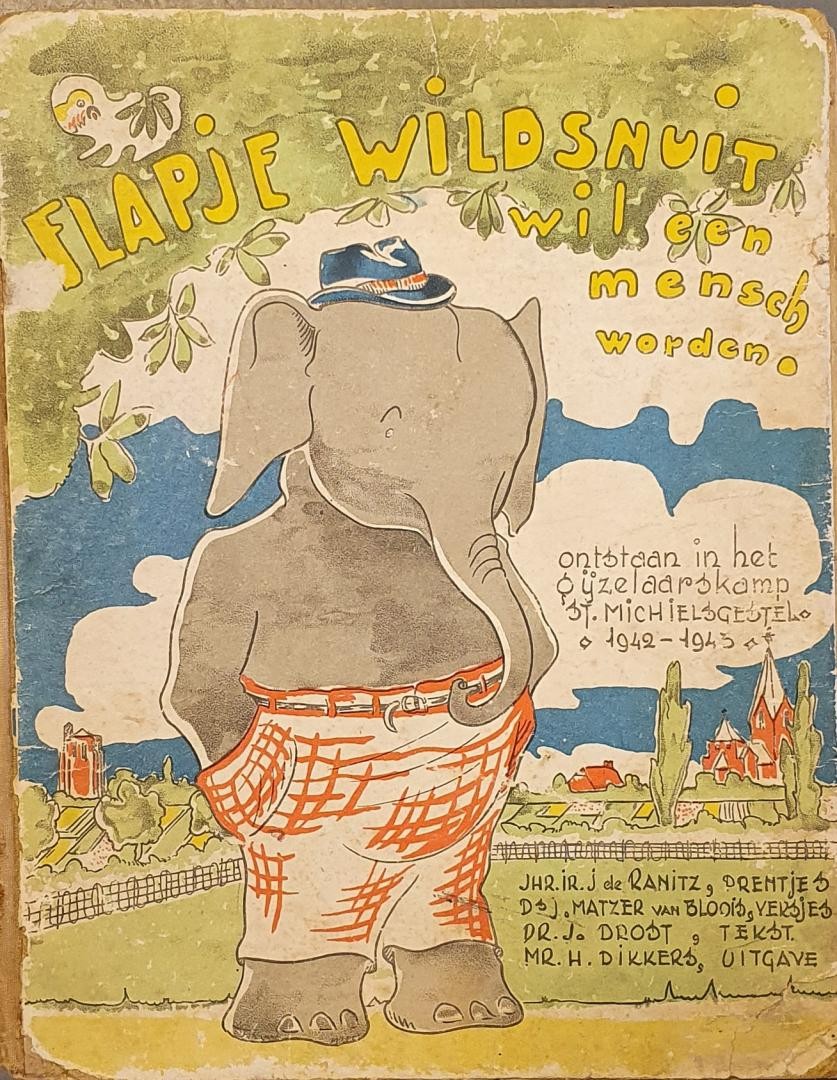 FLAPJE WILDSNUIT
wil een
mensch
worden.
ontstaan in het
gijzelaarskamp
ST. MICHIELSGESTEL
1942-1943
JHR. IR. J de RANITZ, PRENTJES
DS J. MATZER VAN BLOOIS, VERSJES
DR. J. DROST, TEKST.
MR. H. DIKKERS, UITGAVE